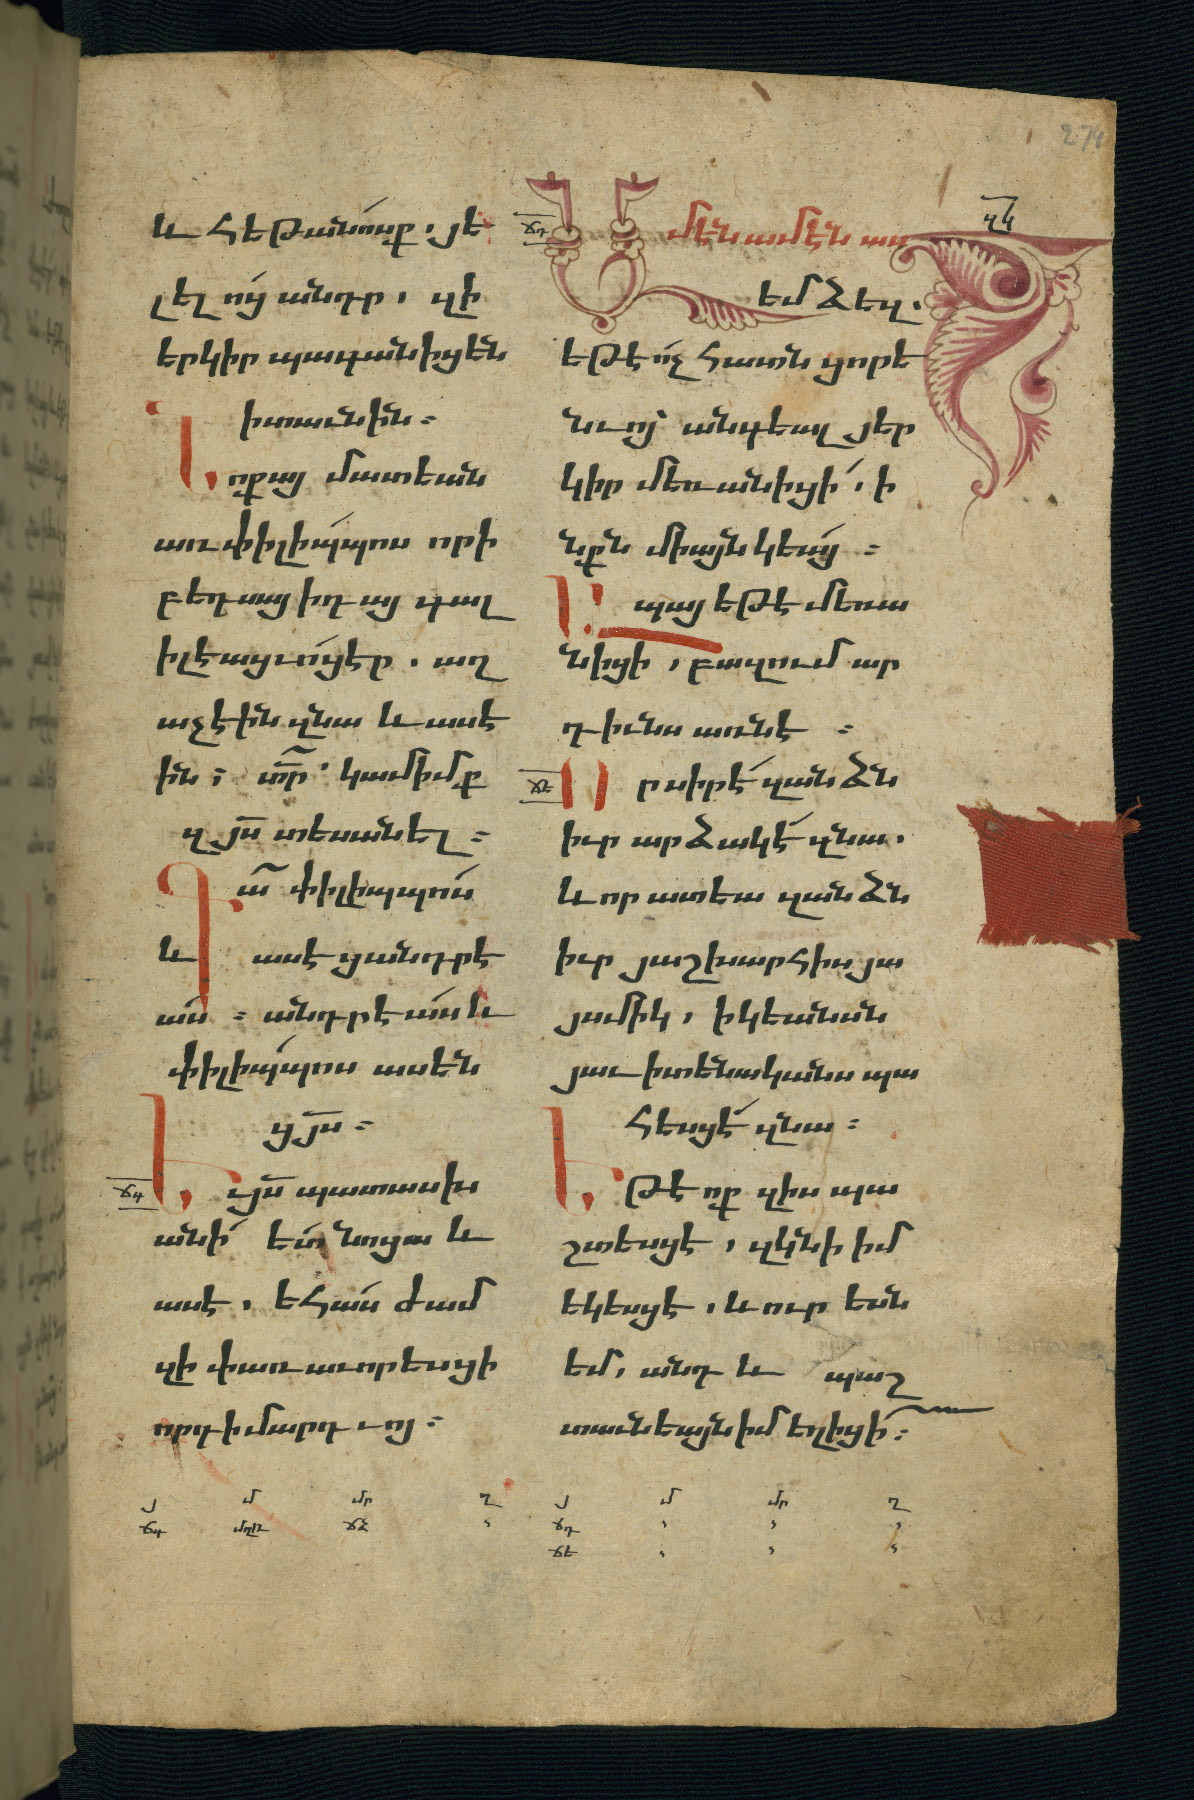 274
և հեթանոսք. յե
լել ո՛յ անդր, զի
երկիր պագանիցեն
ի տաւնին։
Նոքայ մատեան
առ փիլիպպոս որ ի
բեդսայիդայ գալ
իլէացւոյ էր. աղ
աչէին զնա և ասէ
ին։ տր՛ կամիմք
զյս տեսանել։
Գա փիլիպպոս
և ասէ ցանդրէ
աս։ անդրէաս և
փիլիպպոս ասեն
ցյս։
ճգ
Եւ յս պատասխ
անի՛ ետ նոցա և
ասէ, եհաս ժամ
զի փառաւորեսցի
որդի մարդւոյ։
յ մ մր ղ
ճգ ճձ
ճդ
Ամէն ամէն աս
եմ ձեզ.
եթէ ո՛չ հատն ցորե
նւոյ անգեալ յեր
կիր մեռանիցի՛, ի
նքն միայն կեայ։
Ապայ եթէ մեռա
նիցի, բազում ար
դիւնս առնէ։
ճե
Որ սիրէ՛ զանձն
իւր արձակէ՛ զնա.
և որ ատեա զանձն
իւր յաշխարհիս յա
յսմիկ, ի կեանսն
յաւիտենականս պա
հեսցէ՛ զնա։
Եթէ ոք զիս պա
շտեսցէ, զկնի իմ
եկեսցէ, և ուր եսն
եմ, անդ և պաշ
տաւնեայն իմ եղիցի՛։
յ մ մր ղ
ճդ
ճե